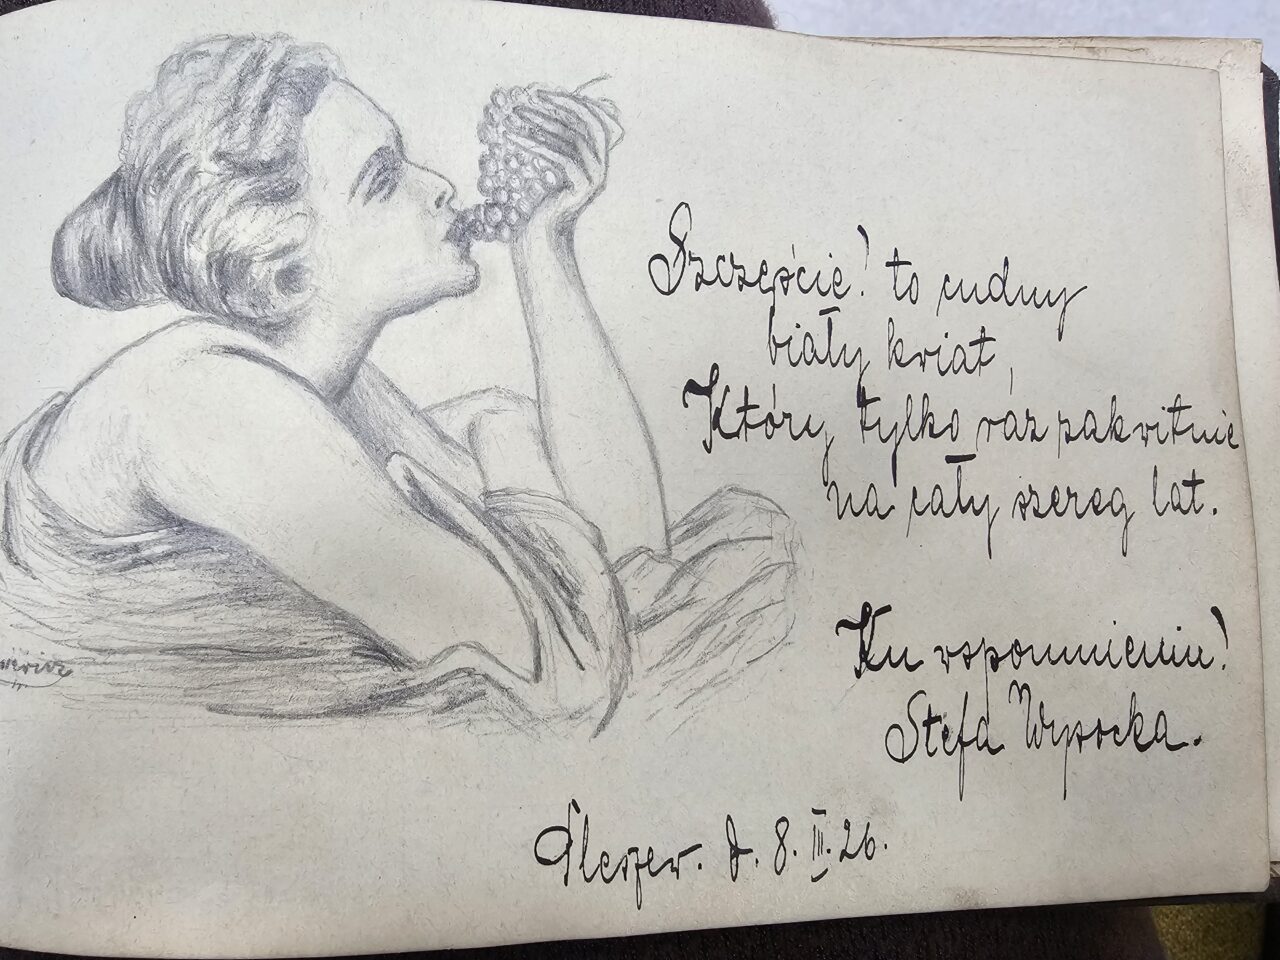 Szczęście! to cudny
biały kwiat,
Który tylko raz zakwitnie
na cały szereg lat.
Ku wspomnieniu!
Stefa Wysocka.
Pleszew. d. 8. III. 26.